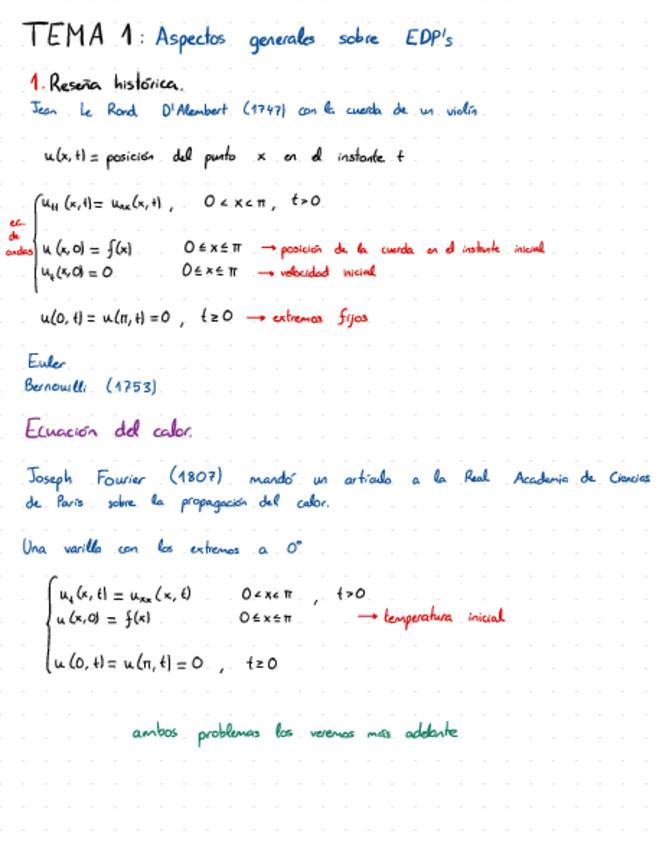 TEMA 1: Aspectos generales sobre EDP's
1. Reseña histórica.
Jean Le Rond D'Alembert (1747) con la cuerda de un violín
u(x,t) = posición del punto x en el instante t
ec. de ondas
u_tt(x,t) = u_xx(x,t), 0 < x < π, t>0
u(x,0) = f(x) 0 ≤ x ≤ π → posición de la cuerda en el instante inicial
u_t(x,0) = 0 0 ≤ x ≤ π → velocidad inicial
u(0,t) = u(π,t) = 0, t ≥ 0 → extremos fijos
Euler
Bernouilli (1753)
Ecuación del calor.
Joseph Fourier (1807) mandó un artículo a la Real Academia de Ciencias
de París sobre la propagación del calor.
Una varilla con los extremos a 0°
u_t(x,t) = u_xx(x,t) 0 < x < π, t>0
u(x,0) = f(x) 0 ≤ x ≤ π → temperatura inicial
u(0,t) = u(π,t) = 0, t ≥ 0
ambos problemas los veremos más adelante